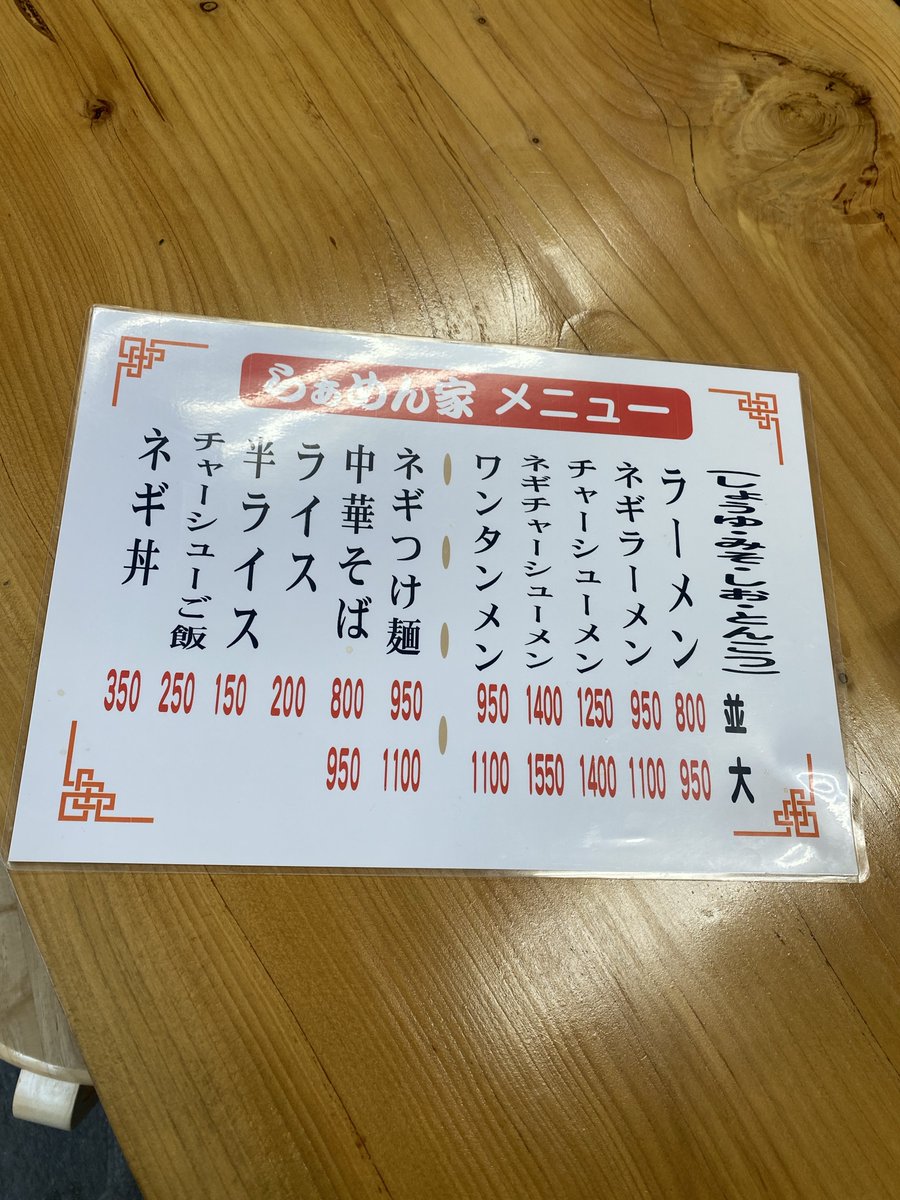 らぁめん家 メニュー
(しょうゆ・みそ・しお・とんこつ) 並 大
ラーメン 800 950
ネギラーメン 950 1100
チャーシューメン 1250 1400
ネギチャーシューメン 1400 1550
ワンタンメン 950 1100
ネギつけ麺 950 1100
中華そば 800 950
ライス 200
半ライス 150
チャーシューご飯 250
ネギ丼 350